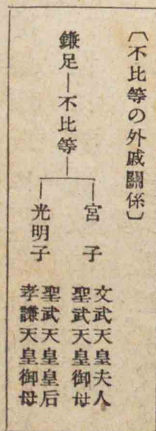 〔不比等の外戚關係〕
鎌足―不比等―
宮子
文武天皇夫人
聖武天皇御母
光明子
聖武天皇皇后
孝謙天皇御母